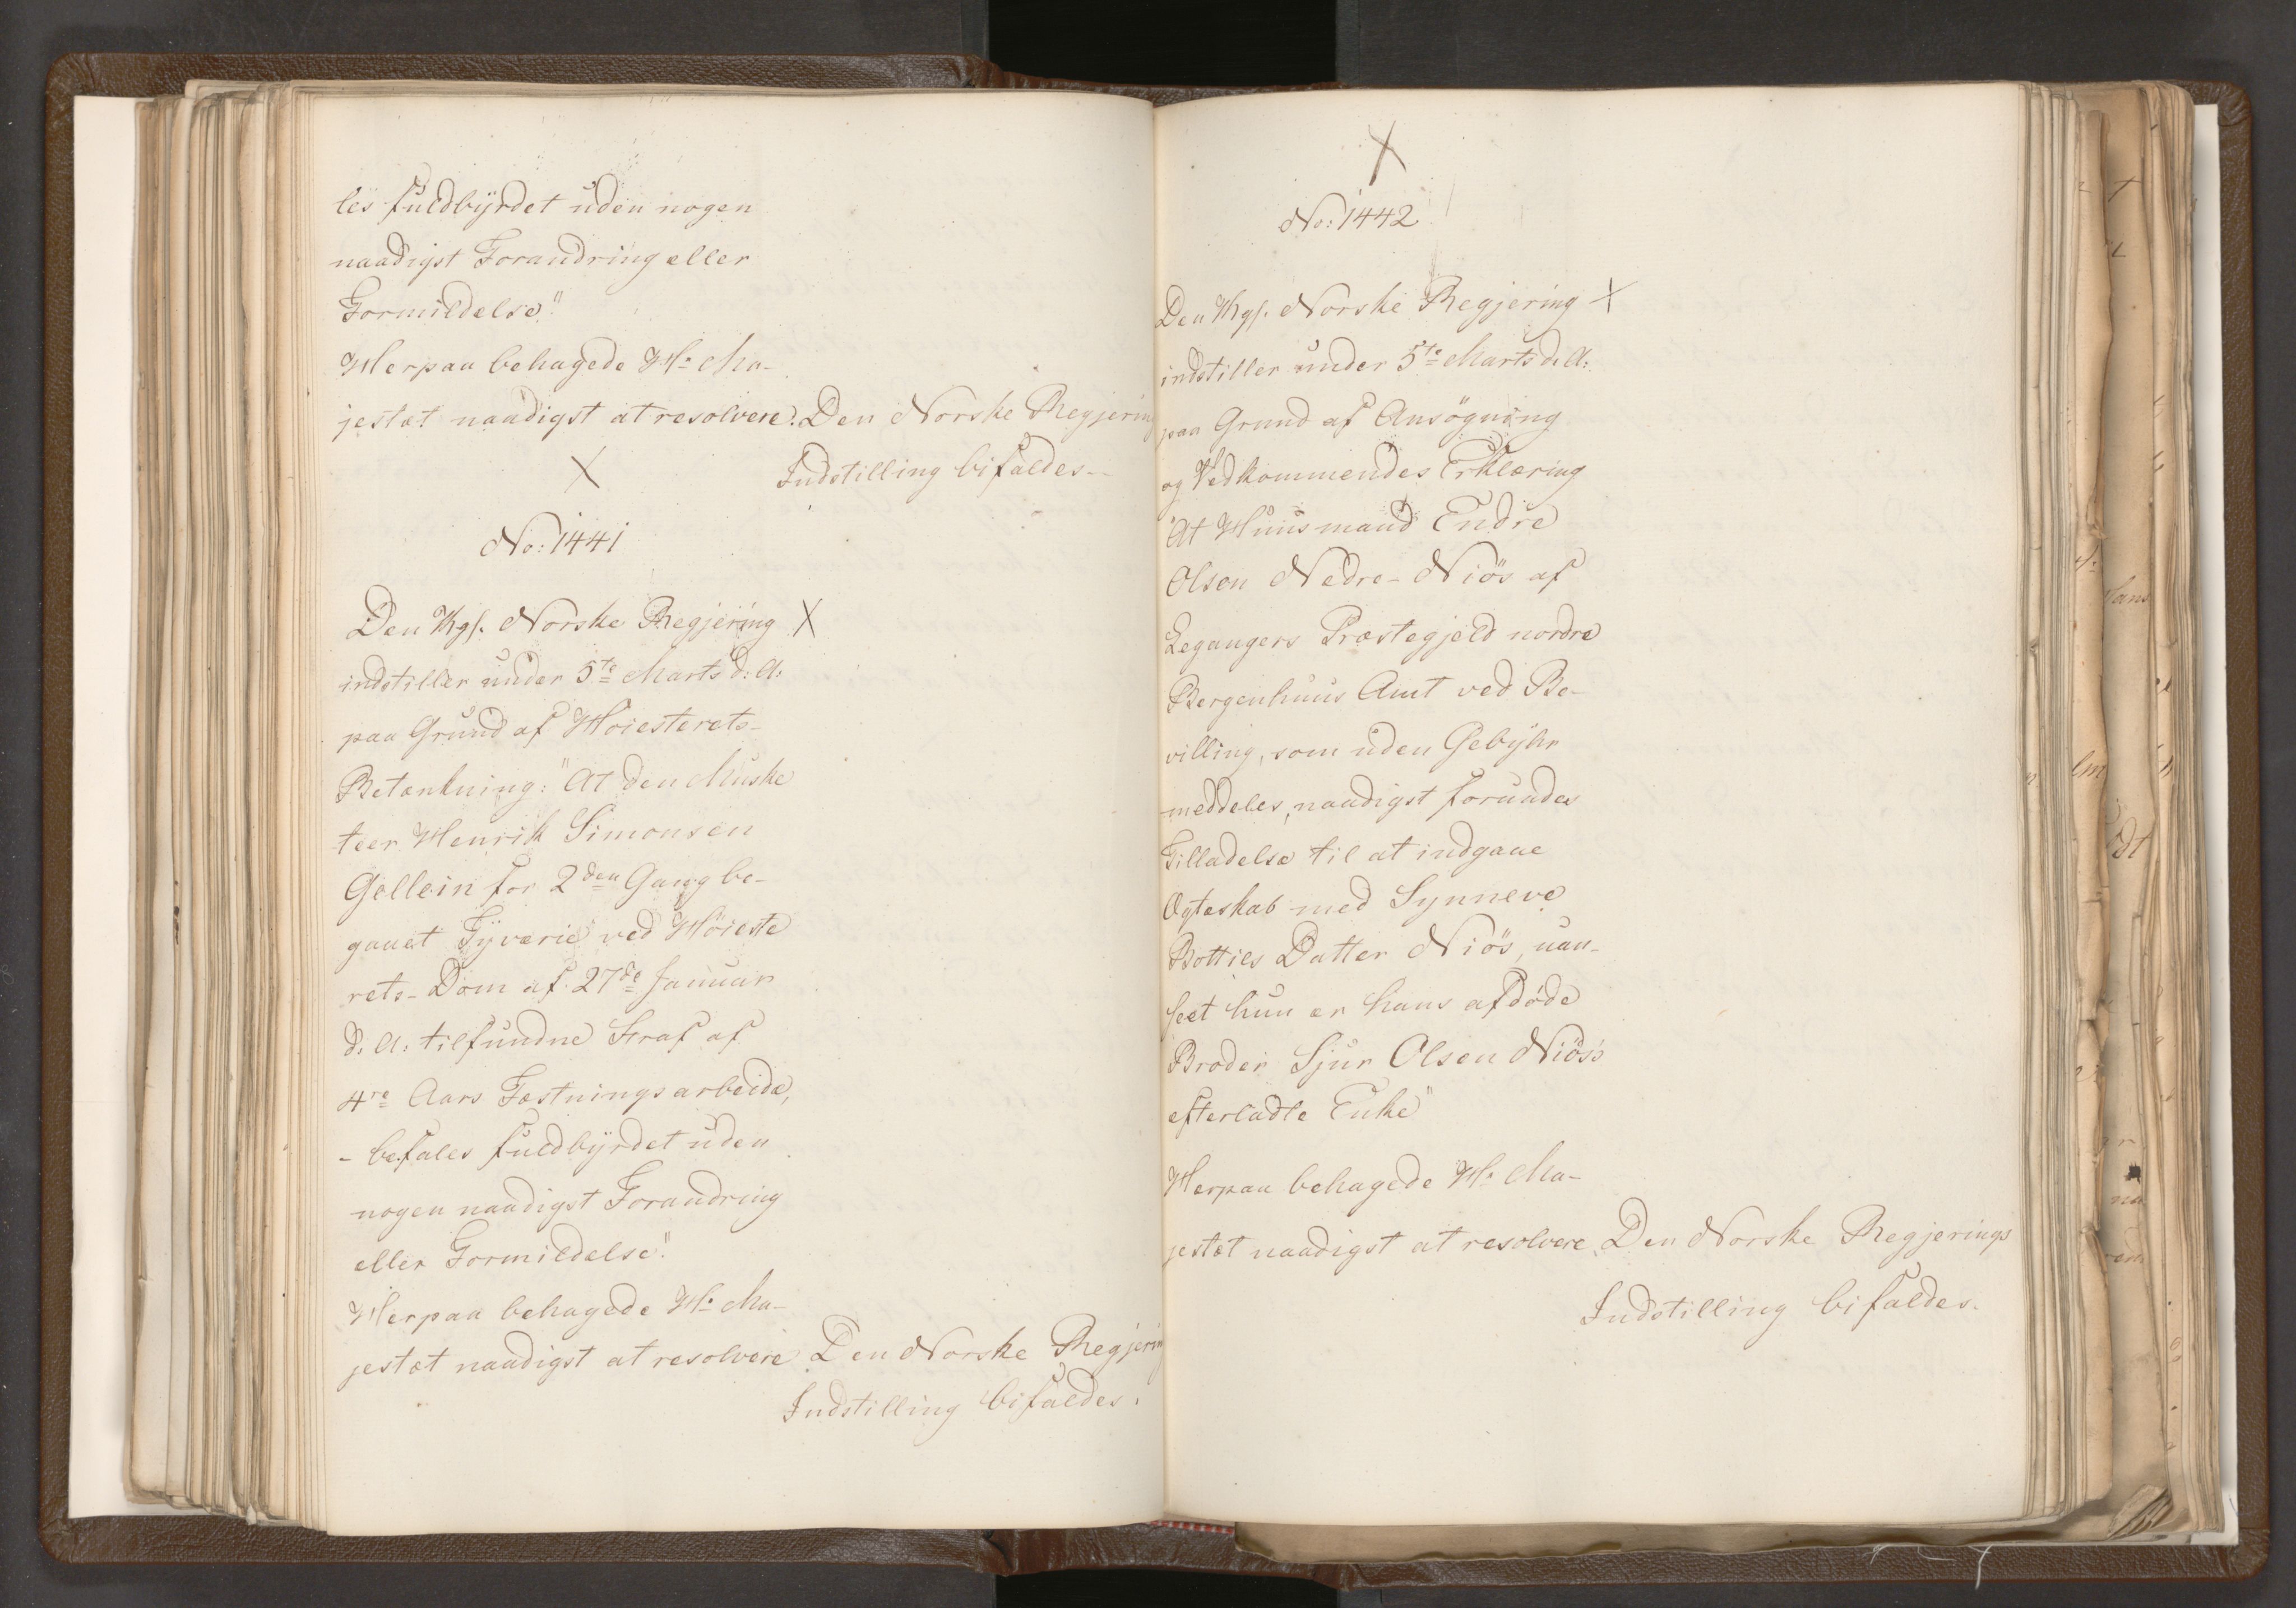 les fuldbÿrdet uden nogen
naadigst Forandring eller
Formildelse"
Herpaa behagede H: Ma-
jestæt naadigst at resolvere: Den Norske Regjering
X
Indstilling bifaldes--
No: 1441
Den Kgl. Norske Regjering X
indstiller under 5te Marts d: A:
paa Grund af Høiesterets-
Betænkning: "At den Muske
teer Henrik Simonsen
Gellein for 2den Gang be-
gaaet Tÿverie ved Høieste
rets-Dom af 27de Januar
d: A: tilfundne Straf af
4re Aars Fæstningsarbeide,
- befales fuldbÿrdet uden
nogen naadigst Forandring
eller Formildelse".
Herpaa behagede H: Ma-
jestæt naadigst at resolvere Den Norske Regjering
Indstilling bifaldes.
X
No: 1442
Den Kgl. Norske Regjering X
indstiller under 5te Marts d: A:
paa Grund af Ansögning
og Vedkommendes Erklæring
"At Huusmand Endre
Olsen Nedre-Niös af
Legangers Præstegjeld nordre
Bergenhuus Amt ved Be-
villing, som uden Gebÿhr
meddeles, naadigst forundes
Tilladelse til at indgaae
Ægteskab med Synneve
Botties Datter Niös, uan-
seet hun er hans afdöde
Broder Sjur Olsen Niös's
efterladte Enke"
Herpaa behagede H: Ma-
jestæt naadigst at resolvere Den Norske Regjerings
Indstilling bifaldes.